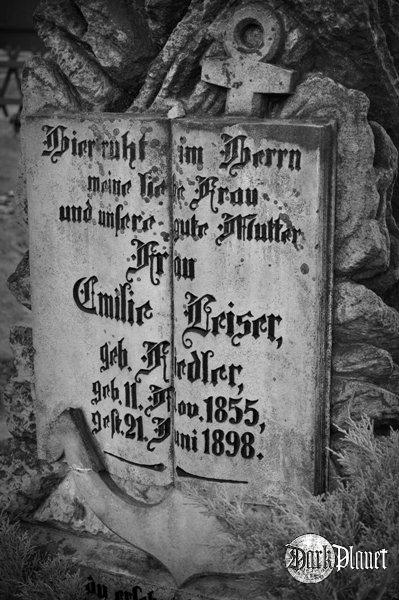 Hier ruht im Herrn
meine liebe Frau
und unsere gute Mutter
Frau
Emilie Leiser,
geb. Riedler,
geb. 11. Nov. 1855,
gest. 21. Juni 1898.
DarkPlanet